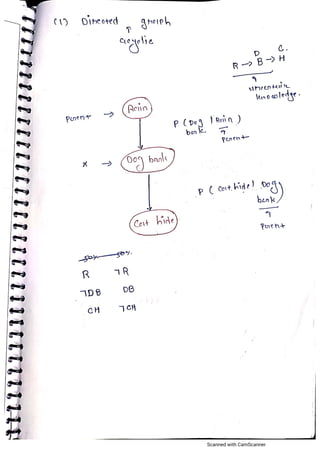 (1) Directed graph
acyclic
D C.
R → B → H
uncertain
knowledge.
Rain
Parent →
P (Dog | Rain)
bark
Parent
x → Dog bark
P ( Cat hide | Dog
bark)
Parent
Cat hide
R ¬R
¬DB DB
CH ¬CH
Scanned with CamScanner